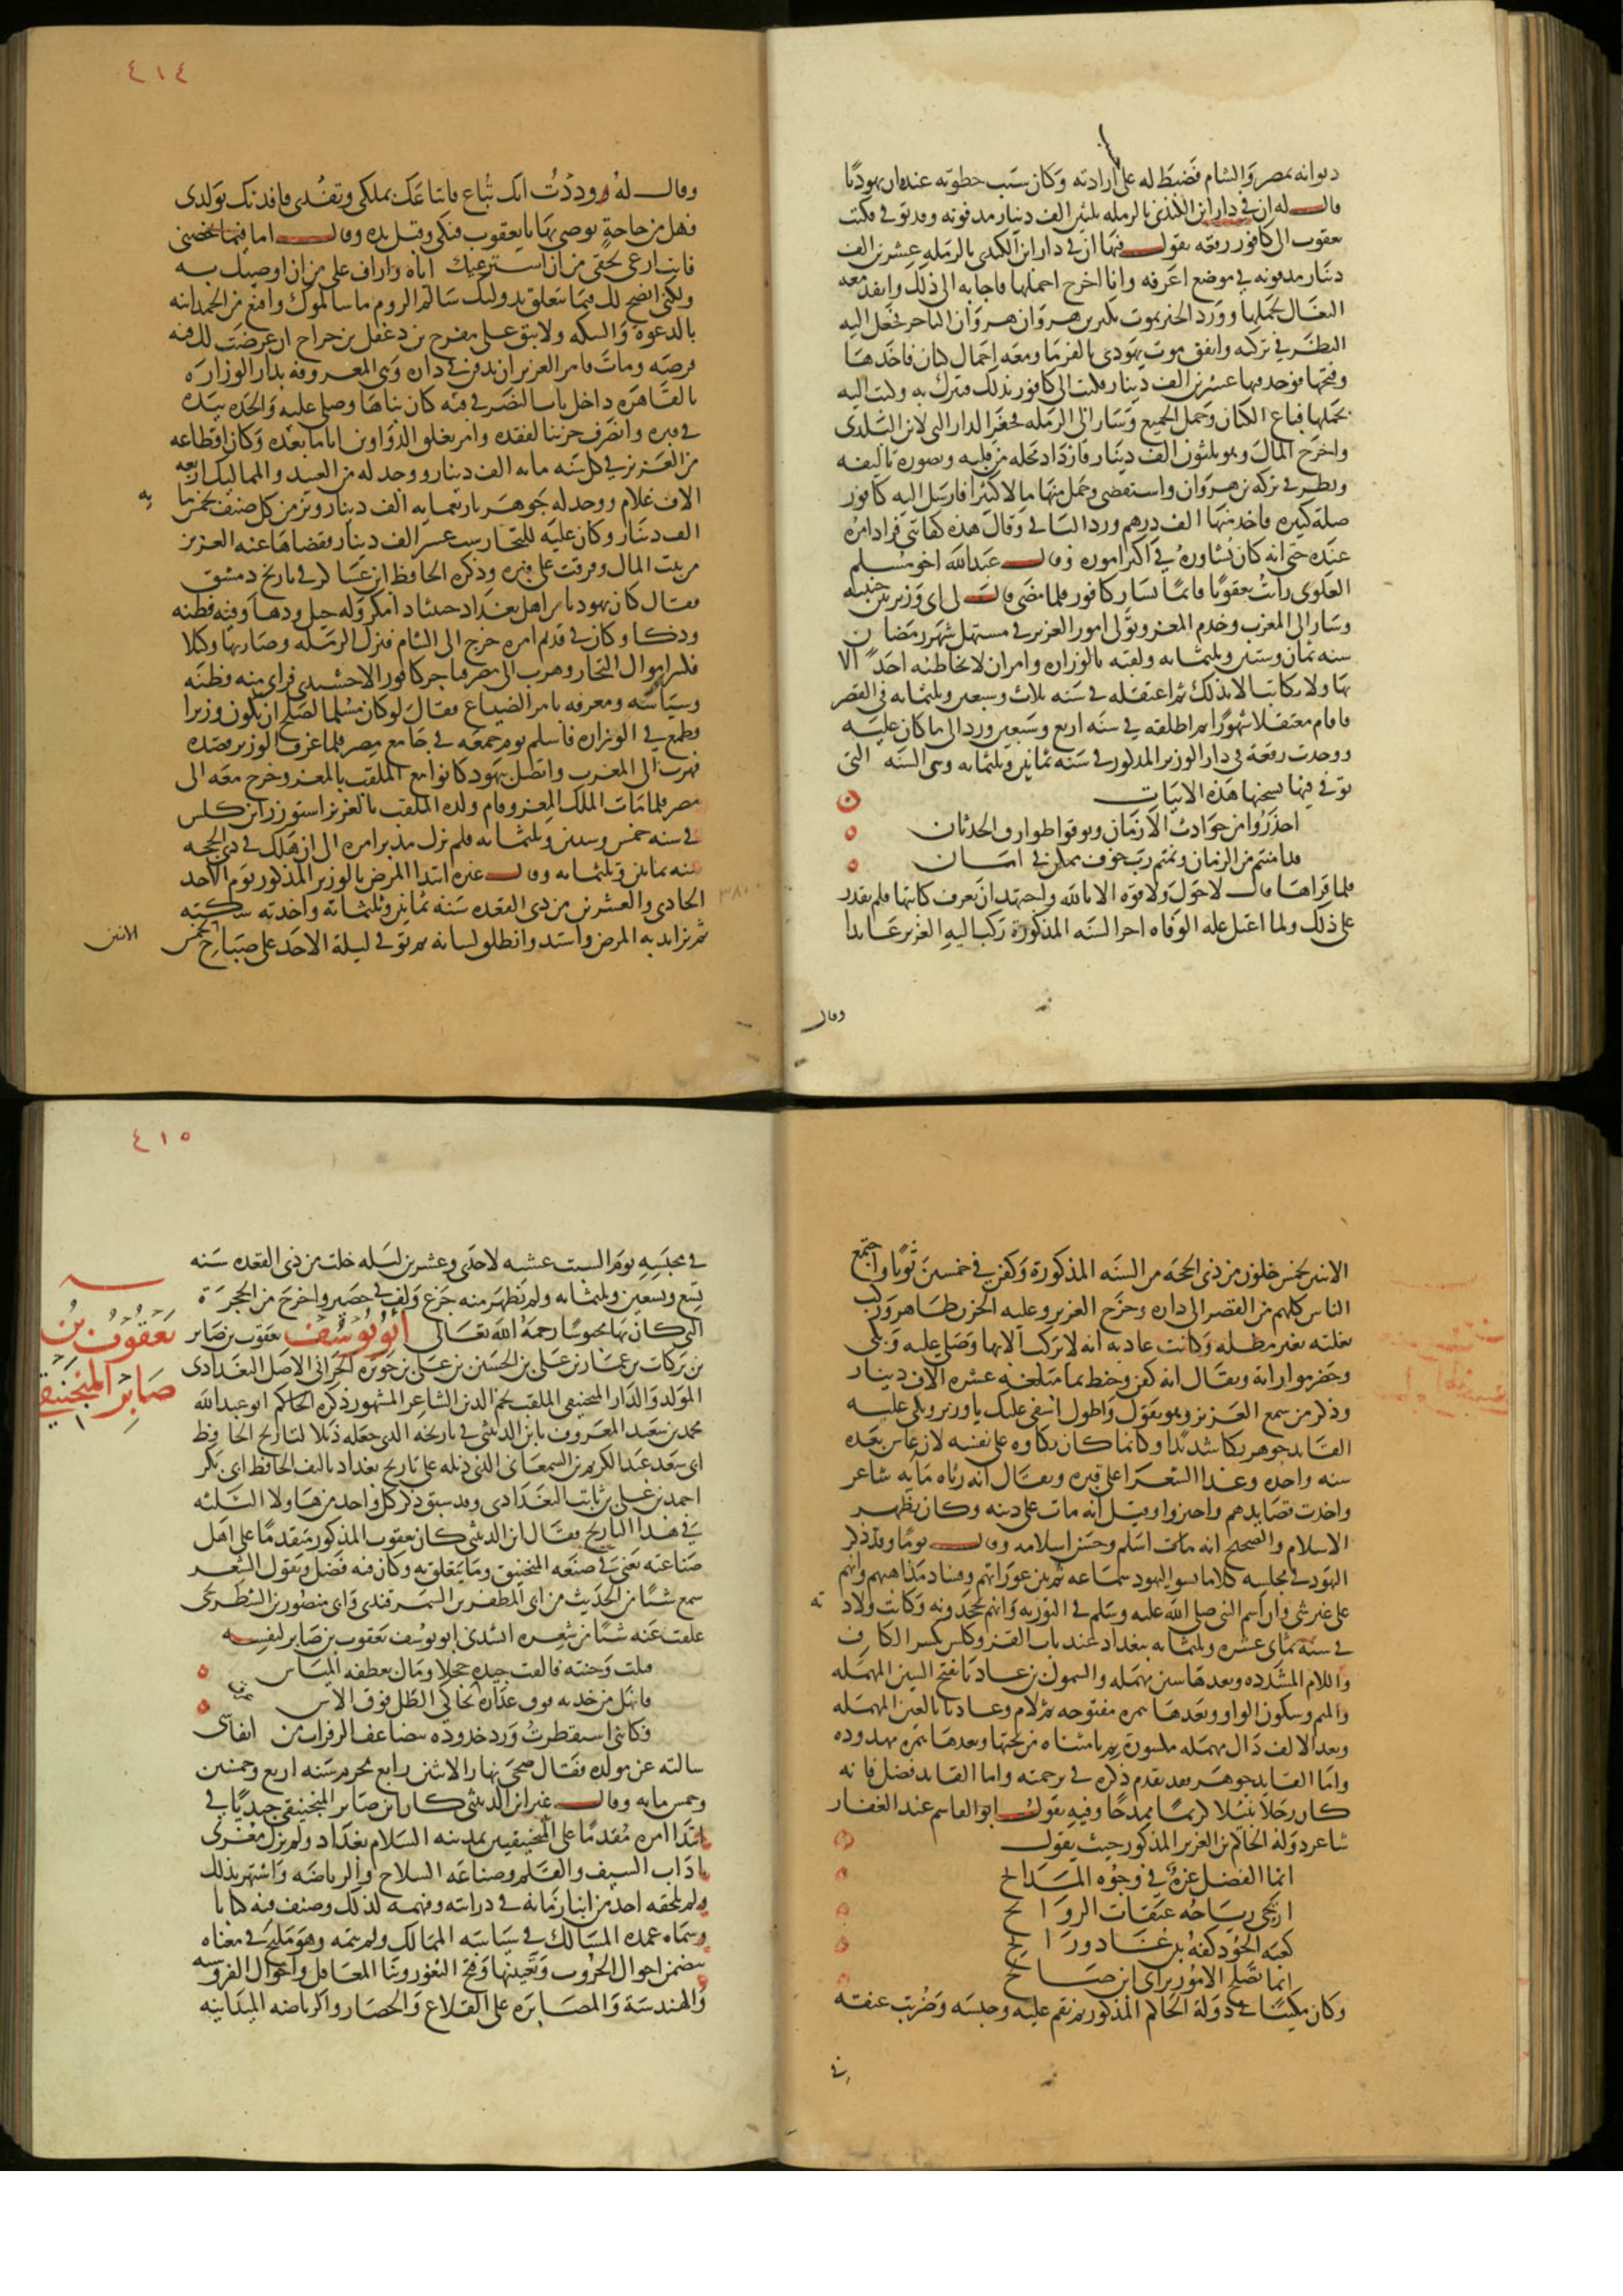 ديوانه بمصر والشام فضبط له على ارادته وكان سبب حظوته عنده ان يهوديا
قال له ان في دار ابن البلدي بالرمله ثلثين الف دينار مدفونه وقد توفي فكتب
يعقوب الى كافور رقعه يقول فيها ان في دار ابن البلدي بالرمله عشرين الف
دينار مدفونه في موضع اعرفه وانا اخرج احملها فاجابه الى ذلك وانفذ معه
البغال لحملها وورد الخبر بموت بكير بن هروان التاجر فجعل اليه
النظر في تركته واتفق موت يهودي بالفرما ومعه احمال كتان فاخذها
وفتحها فوجد فيها عشرين الف دينار فكتب الى كافور بذلك فتبرك به وكتب اليه
بحملها فباع الكتان وحمل الجميع وسار الى الرمله فحفر الدار التي لابن البلدي
واخرج المال وهو ثلثون الف دينار فازداد محله من قلبه وتصوره بالثقه
ونظر في تركه بن هروان واستقصى وحمل منها مالا كثيرا فارسل اليه كافور
صله كبيره فاخذ منها الف درهم ورد الباقي وقال هذه كفايتي فزاد امره
عنده حتى انه كان يشاوره في اكثر اموره وقال عبدالله اخو مسلم
العلوي رايت يعقوبا قائما يسار كافور فلما مضى قال لي اي وزير بين جنبيه
وسار الى المغرب وخدم المعز وتولى امور العزيز في مستهل شهر رمضان
سنه ثمان وستين وثلثمائه ولقبه بالوزاره وامر ان لا يخاطبه احد الا
بها ولا يكاتب الا بذلك ثم اعتقله في سنه ثلاث وسبعين وثلثمائه في القصر
فاقام معتقلا شهورا ثم اطلقه في سنه اربع وسبعين ورد الى ما كان عليه
ووجدت رقعه في دار الوزير المذكور في سنه ثمانين وثلثمائه وهي السنه التي
توفي فيها نسختها هذه الابيات
احذروا من حوادث الازمان وتوقوا طوارق الحدثان
قد امنتم من الزمان ونمتم رب خوف مكمن في امان
فلما قراها قال لا حول ولا قوه الا بالله واجتهد ان يعرف كاتبها فلم يقدر
على ذلك ولما اعتل عله الوفاه اخر السنه المذكورة ركب اليه العزيز عائدا
وقال
٤١٤
وقال له وددت انك تباع فابتاعك بملكي وتفدى فافديك بولدي
فهل من حاجة توصي بها يا يعقوب فبكى وقبل يده وقال اما فيما يخصني
فانت ارعى لحقي من ان استرعيك اياه واراف على من ان اوصيك به
ولكني انصح لك فيما يتعلق بدولتك سالم الروم ما سالموك واقنع من الحمدانيه
بالدعوة والسكه ولا تبق على مفرج بن دغفل بن جراح ان عرضت لك فيه
فرصه ومات فامر العزيز ان يدفن في داره وهي المعروفه بدار الوزاره
بالقاهره داخل باب النصر في قبه كان بناها وصلى عليه والحده بيده
في قبره وانصرف حزينا لفقده وامر بغلق الدواوين اياما بعده وكان اقطاعه
من العزيز في كل سنه مايه الف دينار ووجد له من العبيد والمماليك اربعه
الاف غلام ووجد له جوهر باربعمايه الف دينار وبز من كل صنف بخمس ما
يه
الف دينار وكان عليه للتجار ست عشر الف دينار فقضاها عنه العزيز
من بيت المال وفرقت على قبره وذكره الحافظ ابن عساكر في تاريخ دمشق
فقال كان يهوديا من اهل بغداد خبيثا ذا مكر وله حيل ودها وفيه فطنه
وذكا وكان في قديم امره خرج الى الشام فنزل الرمله وصار بها وكيلا
فكسر اموال التجار وهرب الى مصر فتاجر كافور الاخشيدي فراى منه فطنه
وسياسه ومعرفه بامر الضياع فقال لو كان مسلما لصلح ان يكون وزيرا
فطمع في الوزاره فاسلم يوم جمعه في جامع مصر فلما عرف الوزير قصده
فهرب الى المغرب واتصل بيهود كانوا مع الملقب بالمعز وخرج معه الى
مصر فلما مات الملك المعز وقام ولده الملقب بالعزيز استوزر ابن كلس
في سنه خمس وستين وثلثمائه فلم يزل مدبر امره الى ان هلك في ذي الحجه
سنه ثمانين وثلثمائه وقال غيره ابتدا المرض بالوزير المذكور يوم الاحد
الحادي والعشرين من ذي القعده سنه ثمانين وثلثمائه واخذته سكته
٣٨٠
ثم تزايد به المرض واشتد وانطلق لسانه ثم توفي ليلة الاحد على صباح
الاثنين
الاثنين لخمس خلون من ذي الحجه من السنه المذكورة وكفن في خمسين ثوبا واجتمع
الناس كلهم من القصر الى داره وخرج العزيز وعليه الحزن ظاهر وركب
بغلته بغير مظله وكانت عادته انه لا يركب الا بها وصلى عليه وبكى
وحضر مواراته ويقال انه كفن وحنط بما مبلغه عشره الاف دينار
وذكر من سمع العزيز وهو يقول واطول اسفي عليك يا وزير وبكى عليه
القايد جوهر بكا شديدا وكانما كان بكاوه على نفسه لانه عاش بعده
سنه واحده وغدا الشعرا على قبره ويقال انه رثاه مايه شاعر
واخذت قصايدهم واجيزوا وقيل انه مات على دينه وكان يظهر
الاسلام والصحيح انه مات اسلم وحسن اسلامه وقال يوما وقد ذكر
اليهود في مجلسه كلاما يسوء اليهود سماعه ثم بين عوراتهم وفساد مذاهبهم وانهم
على غير شي وان اسم النبي صلى الله عليه وسلم في التوريه وانهم يجحدونه وكانت ولاد
ته
في سنه ثماني عشره وثلثمايه ببغداد عند باب القز وكلس بكسر الكاف
واللام المشدده وبعدها سين مهمله والسمول بن عاديا بفتح السين المهمله
والميم وسكون الواو وبعدها همزه مفتوحه ثم لام وعاديا بالعين المهمله
وبعد الالف دال مهمله مكسورة ثم يا مثناه من تحتها وبعدها همزه ممدوده
واما القايد جوهر فقد تقدم ذكره في ترجمته واما القايد فضل فانه
كان رجلا نبيلا كريما ممدحا وفيه يقول ابو القاسم عبد الغفار
شاعر دولة الحاكم بن العزيز المذكور حيث يقول
انما الفضل غرة في وجوه المدائح
اريحي رياحه عبقات الروائح
كعبه الجود كفه بل غاد ورائح
انما تصلح الامور براي ابن صالح
وكان مكينا في دولة الحاكم المذكور ثم نقم عليه وحبسه وضربت عنقه
في
٤١٥
في مجلسه يوم السبت عشيه لاحدى وعشرين ليله خلت من ذي القعده سنه
تسع وتسعين وثلثمائه ولم يظهر منه جزع ولف في حصير واخرج من الحجرة
التي كان بها محبوسا رحمه الله تعالى ابو يوسف يعقوب بن صابر
يعقوب بن
صابر المنجنيقي
بن بركات بن عمار بن علي بن الحسين بن علي بن حوثره الحراني الاصل البغدادي
المولد والدار المنجنيقي الملقب نجم الدين الشاعر المشهور ذكره الحاكم ابو عبدالله
محمد بن سعيد المعروف بابن الدبيثي في تاريخه الذي جعله ذيلا لتاريخ الحافظ
ابي سعد عبد الكريم بن السمعاني الذي ذيله على تاريخ بغداد تاليف الحافظ ابي بكر
احمد بن علي بن ثابت البغدادي وقد سبق ذكر كل واحد من هاولا الثلثه
في هذا التاريخ فقال ابن الدبيثي كان يعقوب المذكور متقدما على اهل
صناعته يعني في صنعه المنجنيق وما يتعلق به وكان فيه فضل ويقول الشعر
سمع شيئا من الحديث من ابي المظفر بن السمرقندي وابي منصور بن الشطرنجي
علقت عنه شيئا من شعره انشدني ابو يوسف يعقوب بن صابر لنفسه
قبلت وجنته فالفت جيده خجلا ومال بعطفه المياس
فانهل من خديه فوق عذاره عرق يحاكي الطل فوق الاس
فكانني استقطرت ورد خدوده بتصاعد الزفرات من انفاسي
سالته عن مولده فقال ضحى نهار الاثنين رابع محرم سنه اربع وخمسين
وخمس مايه وقال غير ابن الدبيثي كان ابن صابر المنجنيقي جنديا في
ابتدا امره مقدما على المنجنيقيين بمدينه السلام بغداد ولم يزل مغرى
باداب السيف والقلم وصناعه السلاح والرياضه واشتهر بذلك
ولم يلحقه احد من ابنا زمانه في درايته وفهمه لذلك وصنف فيه كتابا
وسماه عمده المسالك في سياسه الممالك ولم يتمه وهو مليح في معناه
يتضمن احوال الحروب وتعبيتها وفتح الثغور وبنا المعاقل واحوال الفروسيه
والهندسة والمصابره على القلاع والحصار والرياضه الميدانيه